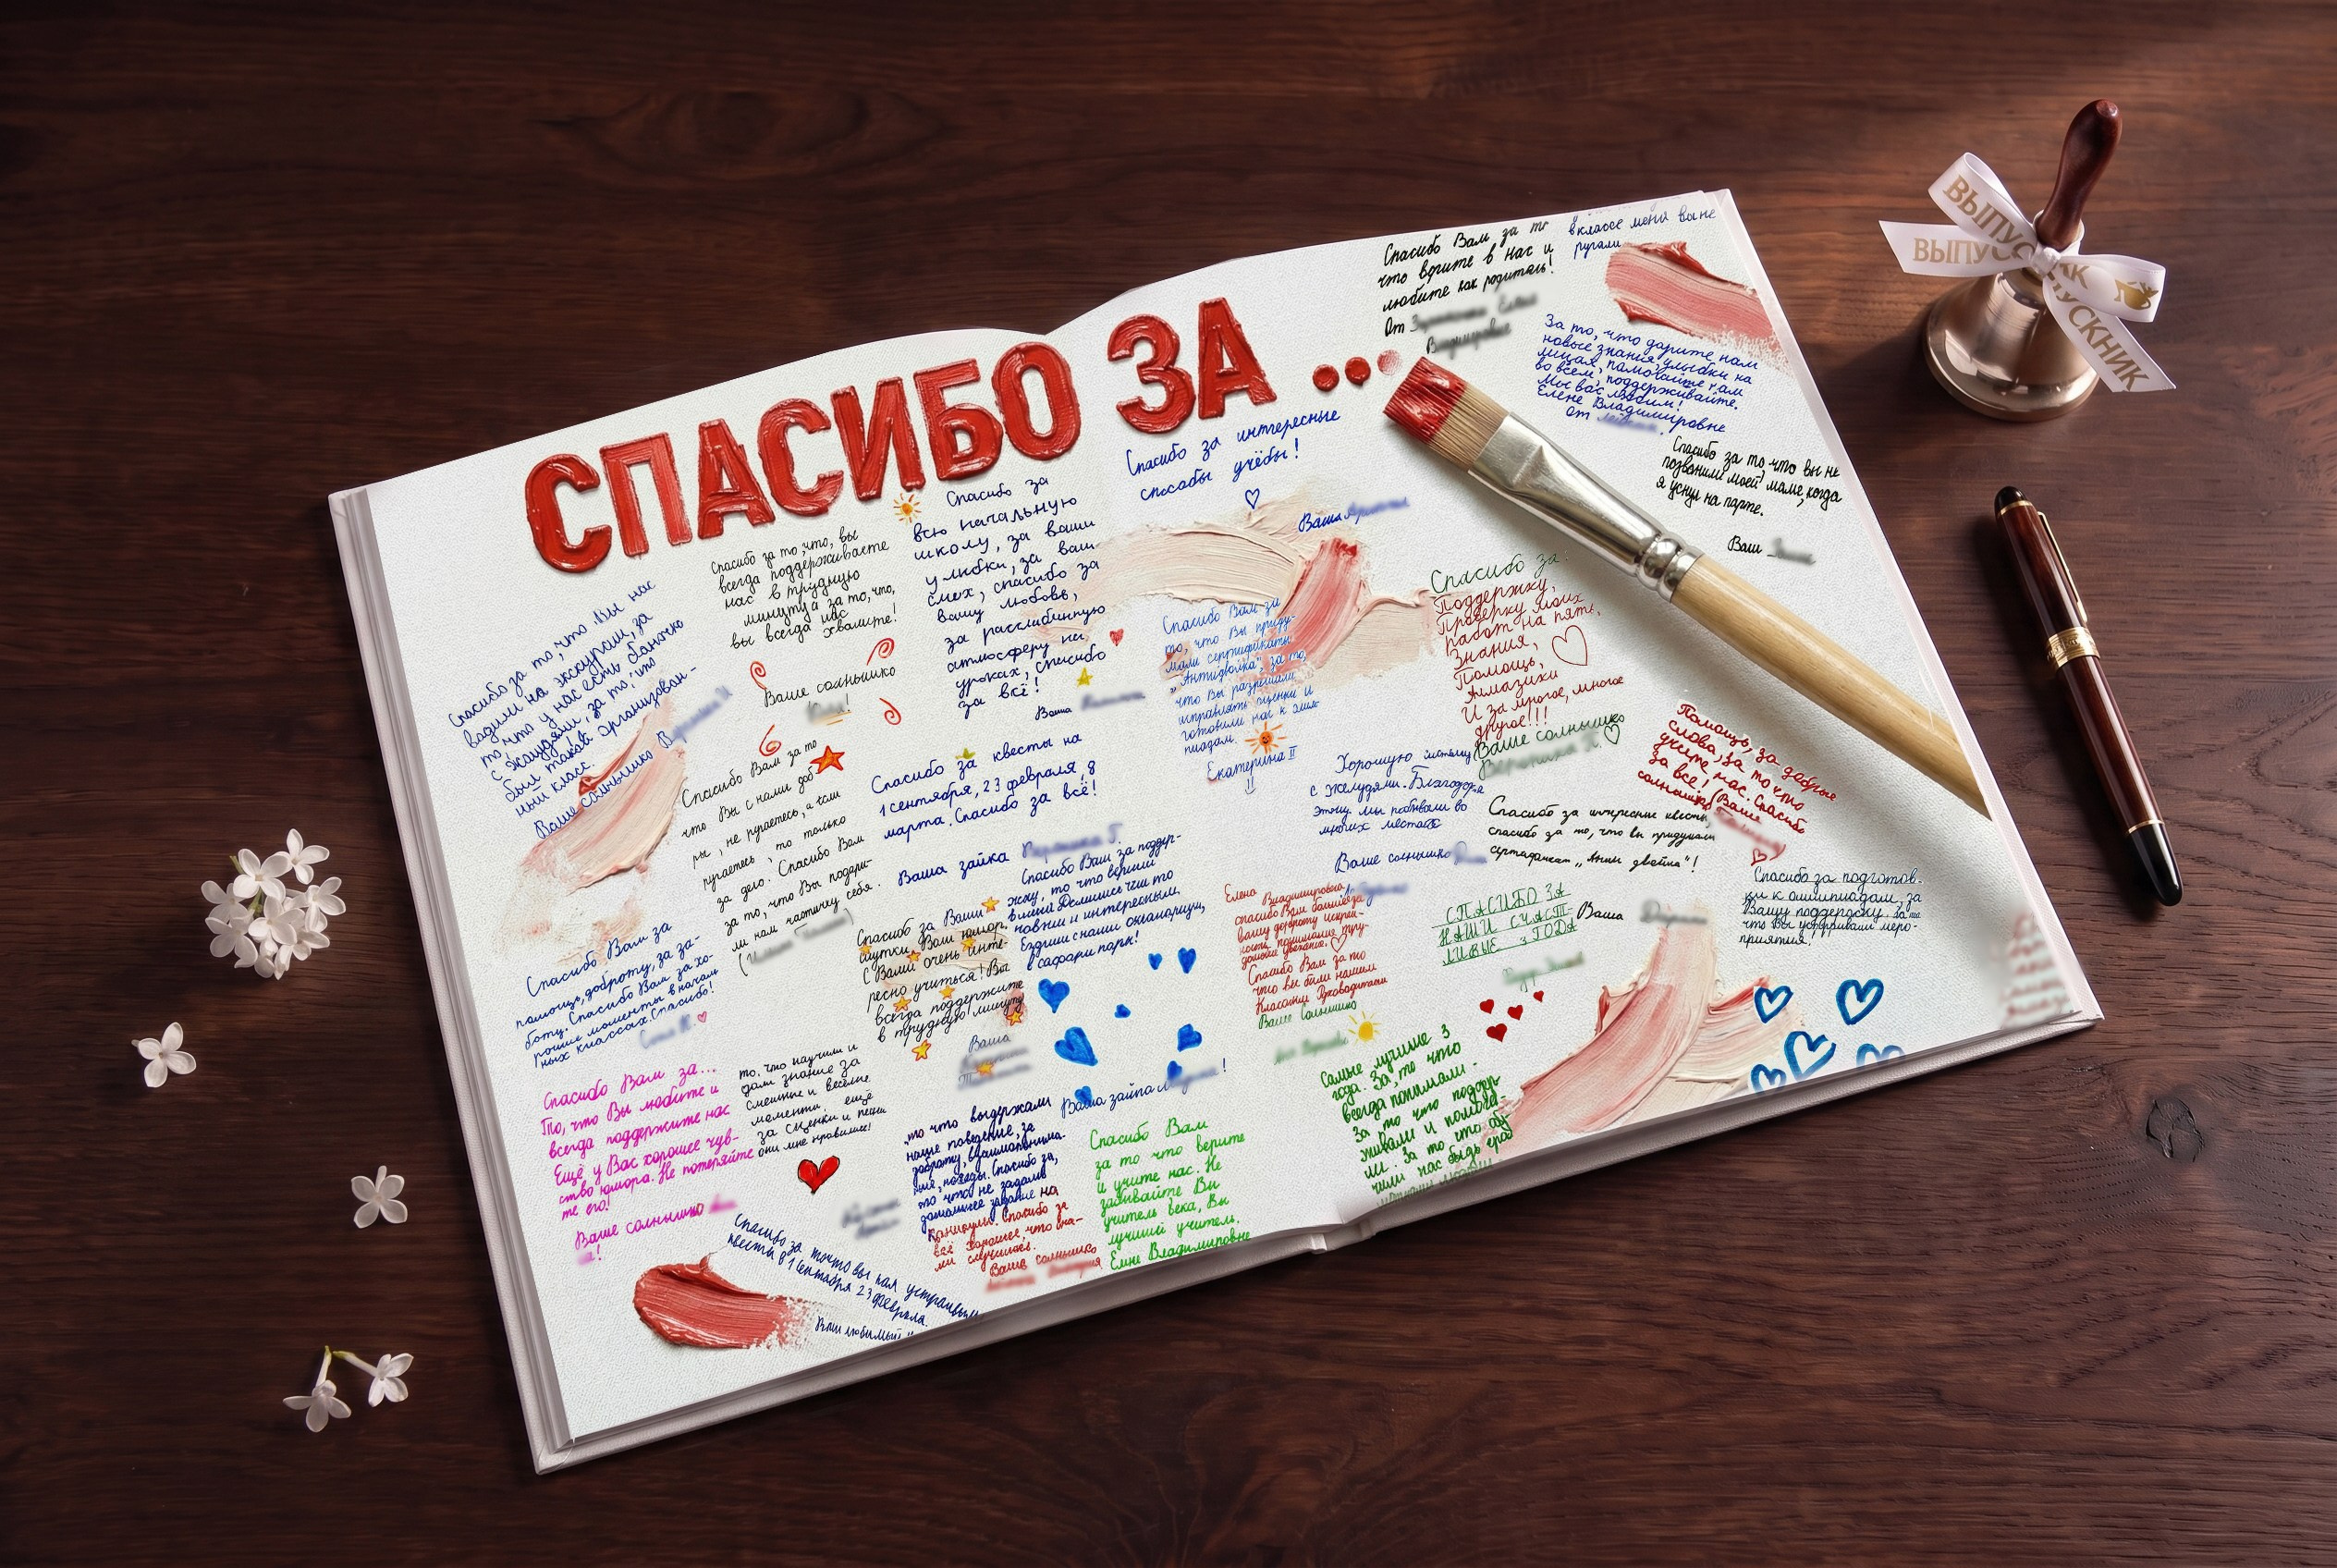 СПАСИБО ЗА ...
Спасибо Вам за то
что верите в нас и
любите как родители!
От
в классе меня вы не
ругали
За то, что дарите нам
новые знания, улыбки на
лицах, помогаете нам
во всём, поддерживаете.
Мы вас любим!
Елене Владимировне
от
Спасибо за то, что вы не
позвонили моей маме, когда
я уснул на парте.
Ваш
Спасибо за интересные
способы учёбы!
Ваша
Спасибо за то, что Вы нас
водили на экскурсии, за
то, что у нас есть баночка
с желудями, за то, что
был такой организован-
ный класс.
Ваше солнышко
Спасибо за то, что, вы
всегда поддерживаете
нас в трудную
минуту и за то, что,
вы всегда нас
хвалите!
Ваше солнышко
Спасибо за
всю начальную
школу, за ваши
улыбки, за ваш
смех, спасибо за
вашу любовь,
за расслабленную
атмосферу на
уроках, спасибо
за всё!
Ваша
Спасибо Вам за
то, что Вы приду-
мали сертификаты
„Антидвойка", за то,
что Вы разрешали
исправлять оценки и
готовили нас к олим-
пиадам.
Екатерина II
Спасибо за:
Поддержку,
Проверку моих
работ на пять,
Знания,
Помощь,
Алмазики
И за многое, многое
другое!!!
Ваше солнышко
Помощь, за добрые
слова, за то что
учите нас. Спасибо
за все! (Ваше
солнышко
Спасибо Вам за то
что Вы с нами доб-
ры, не ругаетесь, а если
ругаетесь, то только
за дело. Спасибо Вам
за то, что Вы подари-
ли нам частичку себя.
Спасибо за квесты на
1 сентября, 23 февраля, 8
марта. Спасибо за всё!
Ваша зайка
Хорошую систему
с желудями. Благодаря
этому мы побывали во
многих местах
Ваше солнышко
Спасибо за интересные квесты,
спасибо за то, что вы придумали
сертификат „Анти двойка"!
Ваша
Спасибо за подготов-
ки к олимпиадам, за
Вашу поддержку. За то
что Вы устраивали меро-
приятия.
Спасибо Вам за
помощь, доброту, за за-
боту. Спасибо Вам за хо-
рошие моменты в началь
ных классах. Спасибо!
Спасибо за Ваши
шутки, Ваш юмор.
С Вами очень инте-
ресно учиться! Вы
всегда поддержите
в трудную минуту
Ваша
Спасибо Вам за поддер-
жку, то что верили
в меня. Делились чем то
новым и интересным.
Ездили с нами океанариум,
в сафари парк!
Ваша зайка
Елена
Владимировна,
спасибо Вам большое за
вашу доброту искрен-
ность понимание тру-
долюбие
Спасибо Вам за то
что вы были нашим
Классным Руководителем
Ваше Солнышко
СПАСИБО ЗА
НАШИ СЧАСТ
ЛИВЫЕ 3 ГОДА
Спасибо Вам за...
То, что Вы любите и
всегда поддержите нас
Ещё у Вас хорошее чув-
ство юмора. Не потеряйте
те его!
Ваше солнышко
то, что научили и
дали знание за
смешные и веселые
моменты. ещё
за сценки и песни
они мне нравились!
то что выдержали
наше поведение, за
доброту, взаимопонима-
ние, победы. Спасибо за,
то что не задали
домашнее задание на
каникулы. Спасибо за
всё хорошее, что с на-
ми случилось.
Ваше солнышко
Спасибо Вам
за то что верите
и учите нас. Не
забывайте Вы
учитель века, Вы
лучший учитель.
Елене Владимировне
Самые лучшие 3
года. За, то что
всегда понимали.
За то что поддер-
живали и помога-
ли. За то что обу-
чили нас быть
Спасибо за то что вы нам устраивали
квесты 8 1 Сентября 23 Февраля.
Ваш любимый
ВЫПУСКНИК